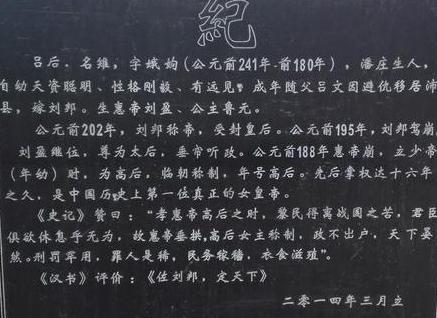 紀
吕后，名雉，字娥姁（公元前241年-前180年），潘庄生人，
自幼天资聪明、性格刚毅、有远见，成年随父吕文因避仇移居沛
县，嫁刘邦。生惠帝刘盈、公主鲁元。
公元前202年，刘邦称帝，受封皇后。公元前195年，刘邦驾崩
刘盈继位，尊为太后，垂帘听政。公元前188年惠帝崩，立少帝
（年幼）时，为高后，临朝称制，年号高后。先后掌权达十六年
之久，是中国历史上第一位真正的女皇帝。
《史记》赞曰：“孝惠帝高后之时，黎民得离战国之苦，君臣
俱欲休息乎无为，故惠帝垂拱，高后女主称制，政不出户，天下晏
然。刑罚罕用，罪人是稀，民务稼穑，衣食滋殖”。
《汉书》评价：《佐刘邦，定天下》
二零一四年三月立